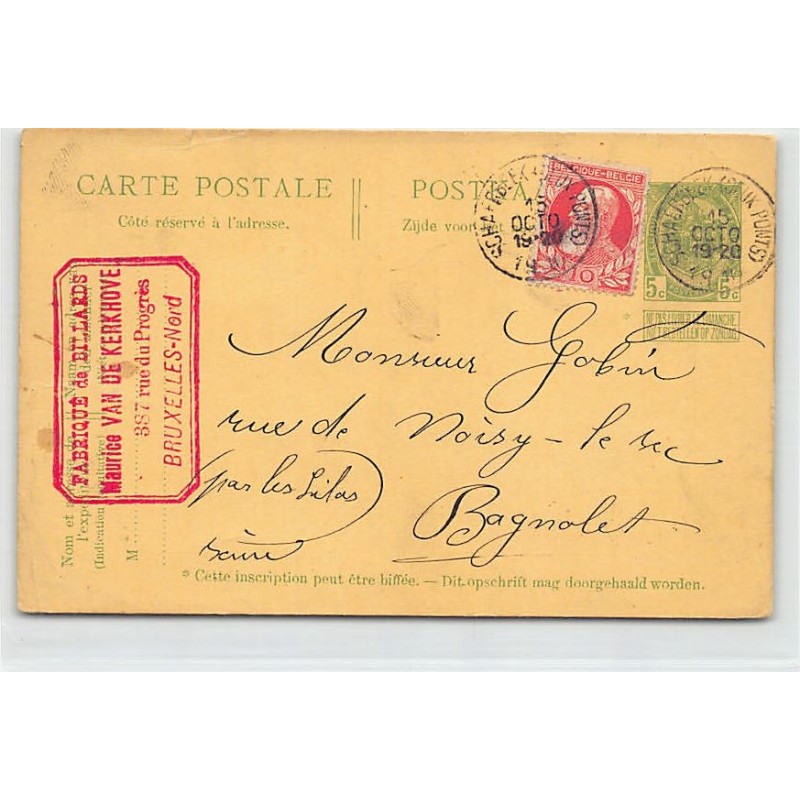 CARTE POSTALE
Côté réservé à l'adresse.
POSTKAA
Zijde voor het
BELGIQUE-BELGIË
SCHAERBEEK (DEUX PONTS)
15
OCTO
19-20
SCHAERBEEK (DEUX PONTS)
15
OCTO
19-20
5c 5c
NE PAS LIVRER LE DIMANCHE
NIET BESTELLEN OP ZONDAG
FABRIQUE de BILLARDS
Maurice VAN DE KERKHOVE
387 rue du Progrès
BRUXELLES-Nord
Nom et
l'exp
(Indication facultative)
M
Monsieur Gobin
rue de Noisy-le sec
(par les Lilas)
Bagnolet
Seine
* Cette inscription peut être biffée. — Dit opschrift mag doorgehaald worden.